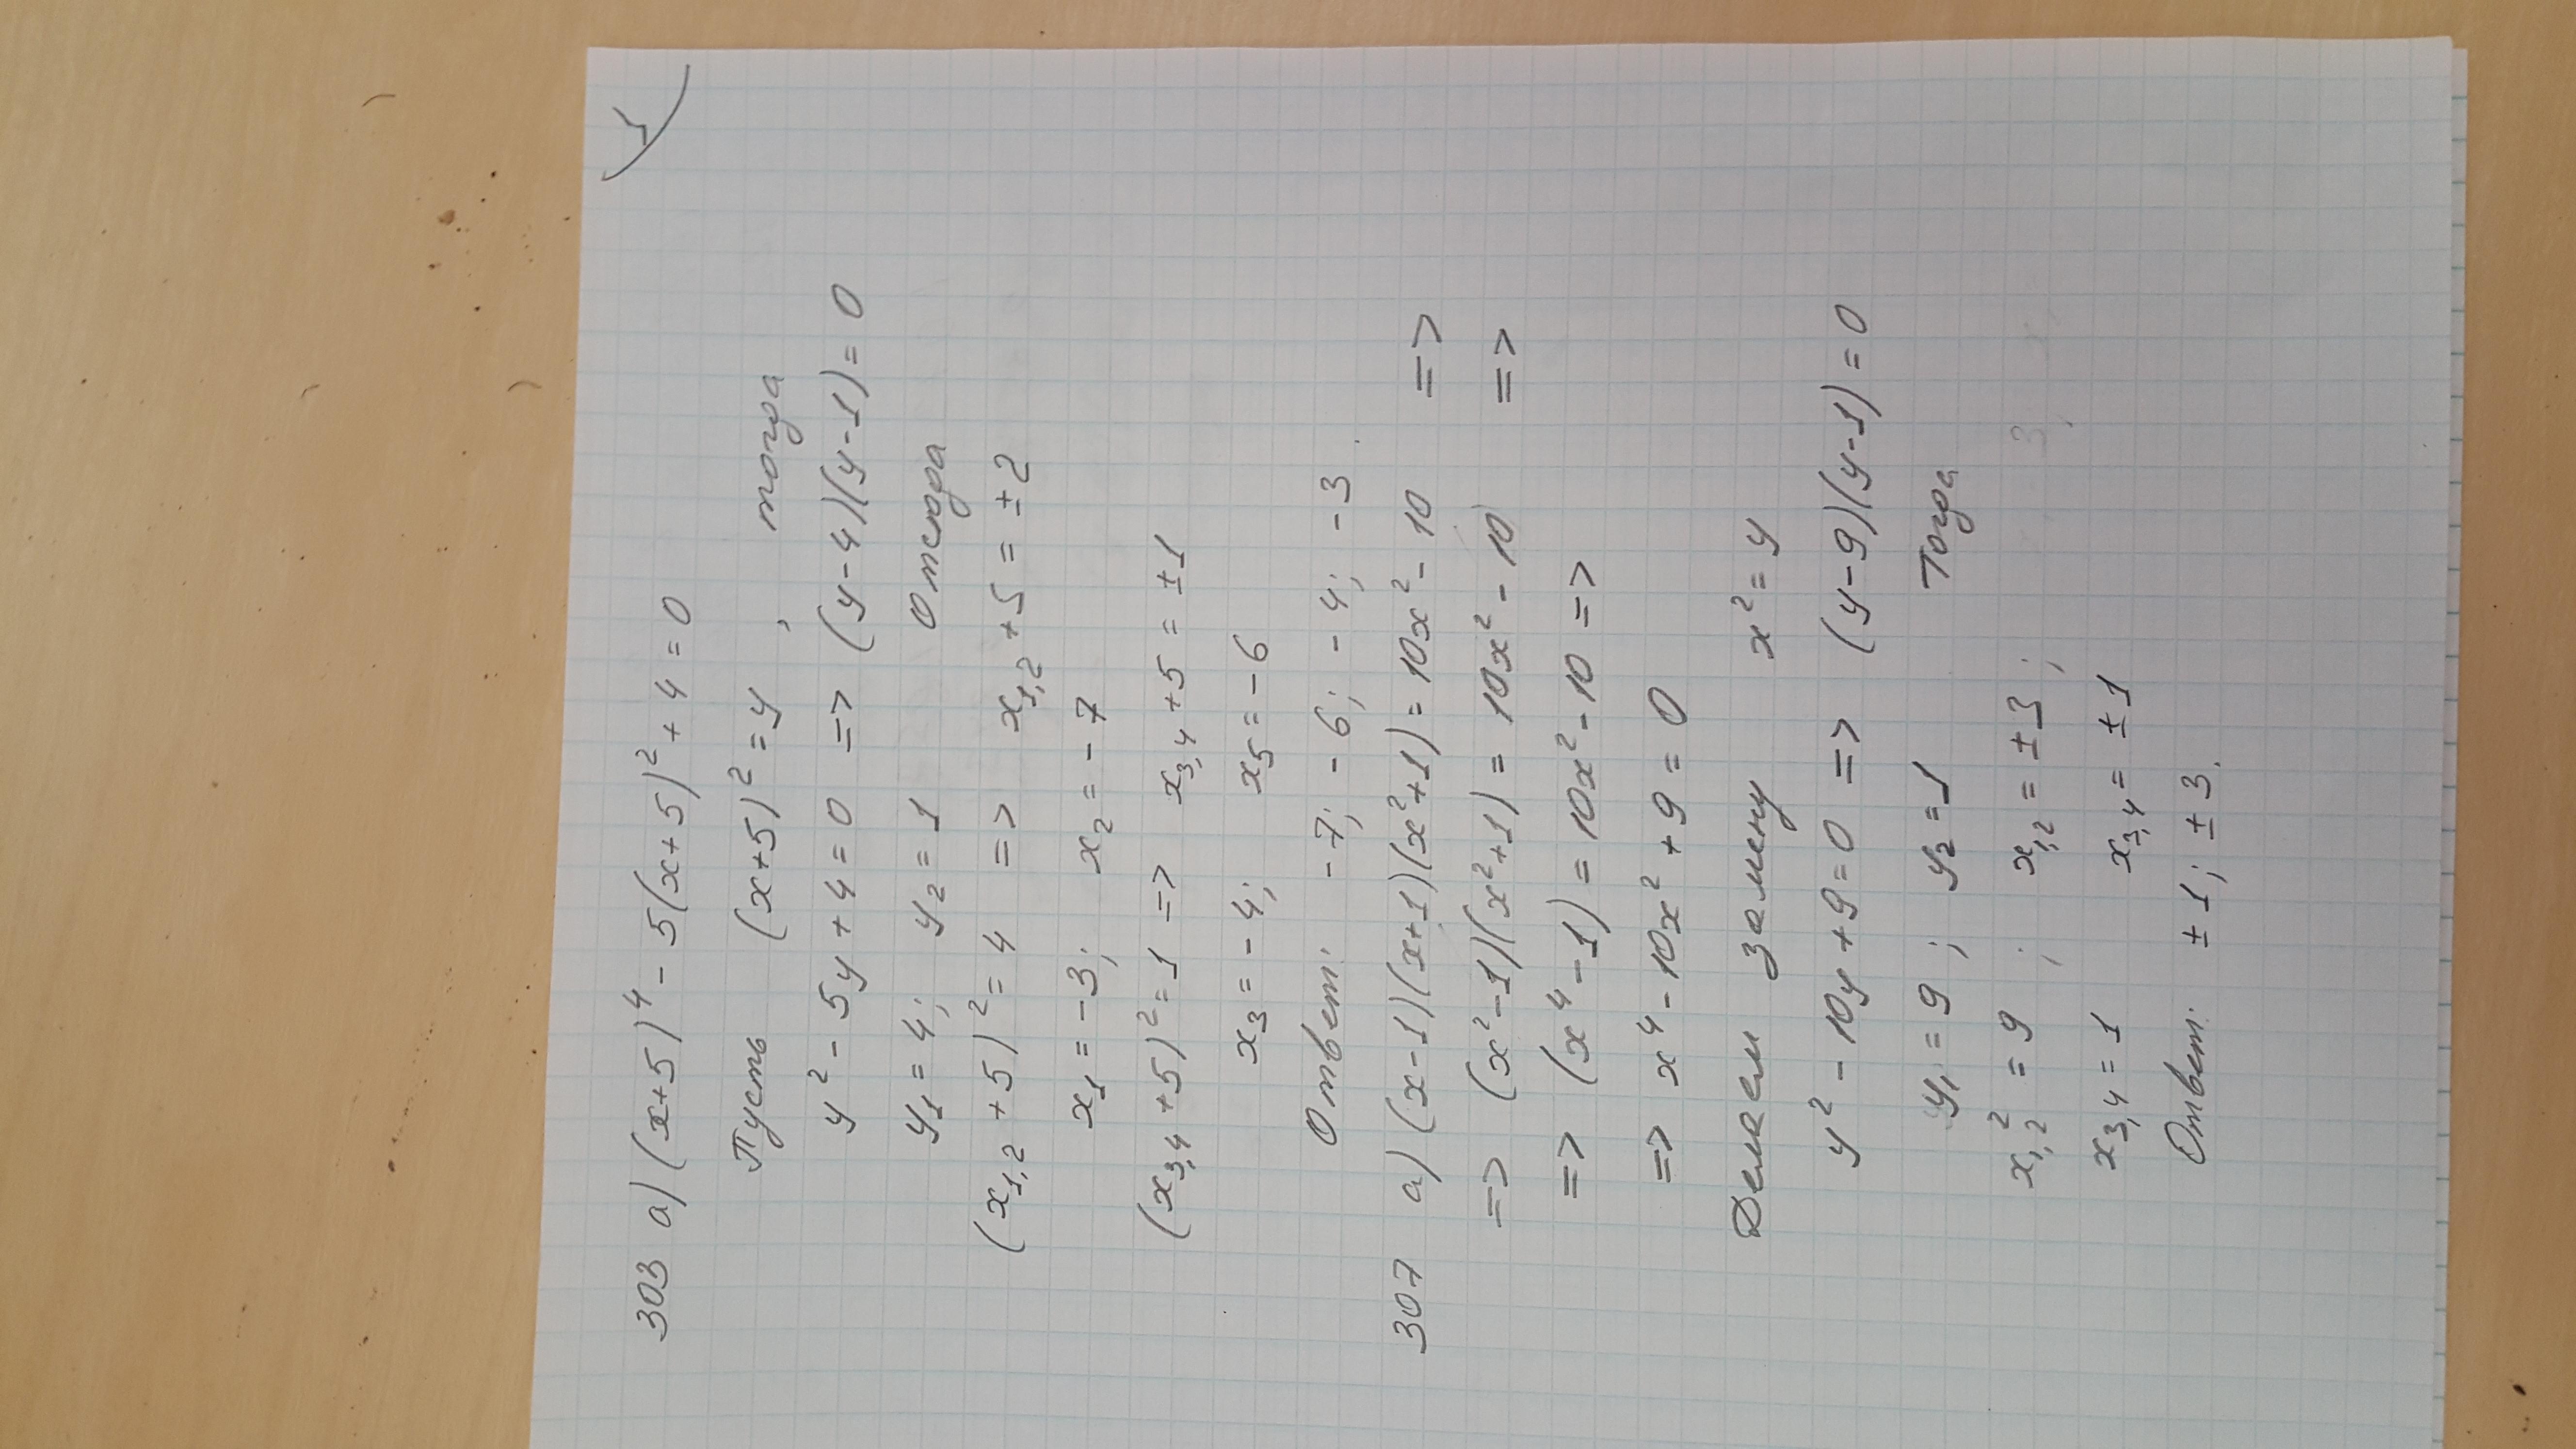 1
303 а) (x+5)⁴ - 5(x+5)² + 4 = 0
Пусть (x+5)² = y , тогда
y² - 5y + 4 = 0 => (y-4)(y-1) = 0
y₁ = 4; y₂ = 1 Отсюда
(x₁,₂ + 5)² = 4 => x₁,₂ + 5 = ±2
x₁ = -3; x₂ = -7
(x₃,₄ + 5)² = 1 => x₃,₄ + 5 = ±1
x₃ = -4; x₅ = -6
Ответ: -7; -6; -4; -3
307 а) (x-1)(x+1)(x²+1) = 10x² - 10 =>
=> (x²-1)(x²+1) = 10x² - 10 =>
=> (x⁴-1) = 10x² - 10 =>
=> x⁴ - 10x² + 9 = 0
Делаем замену x² = y
y² - 10y + 9 = 0 => (y-9)(y-1) = 0
y₁ = 9 ; y₂ = 1 Тогда
x₁,₂² = 9 ; x₁,₂ = ±3 ;
x₃,₄ = 1 x₃,₄ = ±1
Ответ: ±1; ±3.